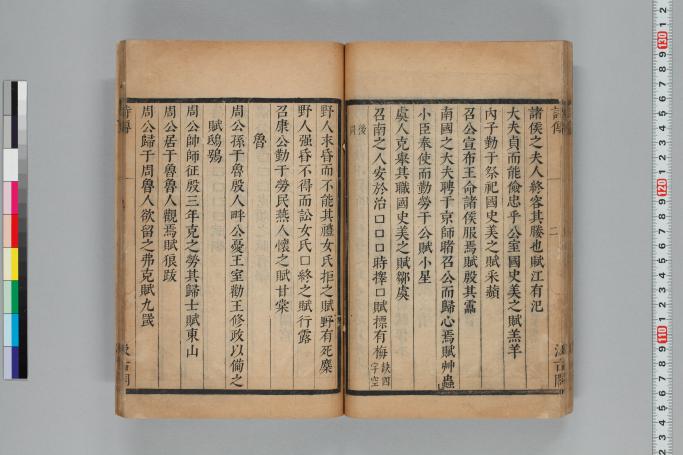 諸侯之夫人終容其媵也賦江有汜
大夫貞而能儉忠乎公室國史美之賦羔羊
內子勤于祭祀國史美之賦采蘋
召公宣布王命諸侯服焉賦殷其靁
南國之大夫聘于京師睹召公而歸心焉賦艸蟲
小臣奉使而勤勞于公賦小星
虞人克舉其職國史美之賦騶虞
召南之人安於治口口口時擇口賦摽有梅 缺四字空
後同
野人求昏而不能其禮女氏拒之賦野有死麋
野人强昏不得而訟女氏口終之賦行露
召康公勤于勞民燕人懷之賦甘棠
魯
周公孫于魯殷人畔公憂王室勸王修政以備之
賦鴟鴞
周公帥師征殷三年克之勞其歸士賦東山
周公居于魯魯人觀焉賦狼跋
周公歸于周魯人欲留之弗克賦九罭
二
汲古閣
110
120
130